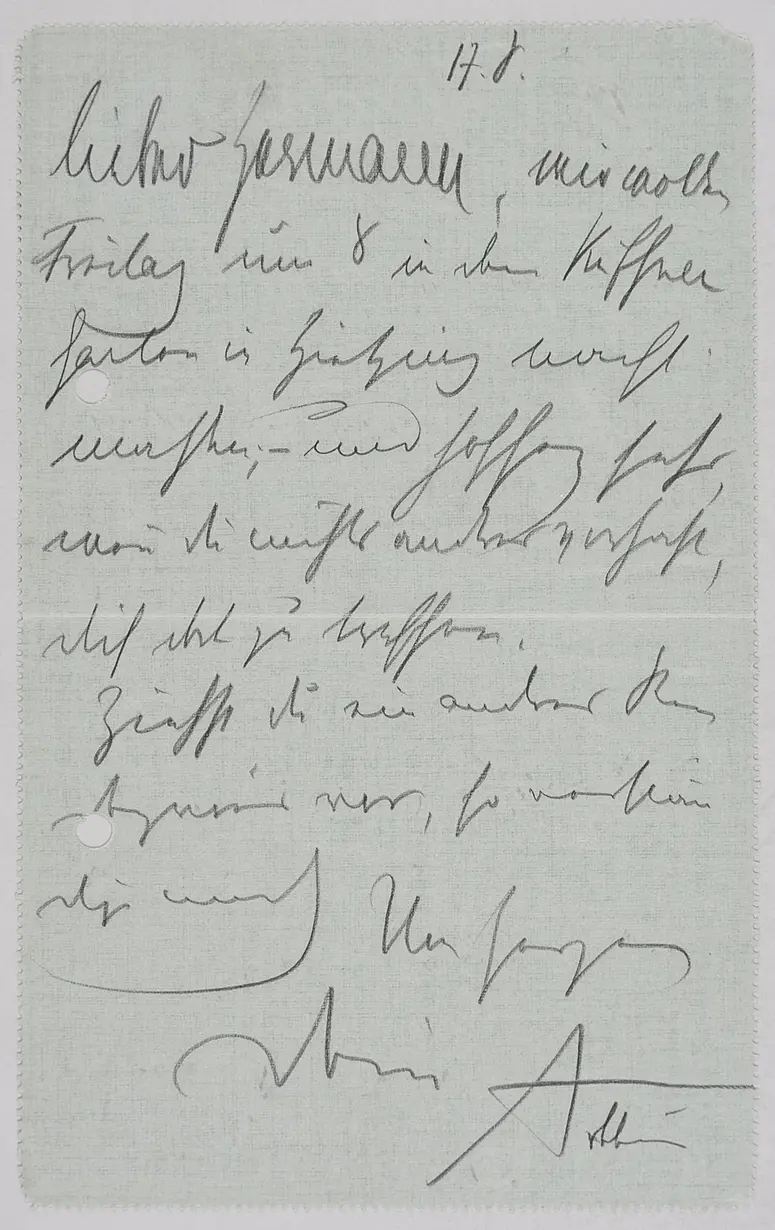 17. 8.
lieber Hermann, wir wollen
Freitag um 8 in dem Kuffner
garten in Hietzing nacht
mahlen, – und hoffen sehr,
wenn du nichts andres vorhast,
dich dort zu treffen.
Ziehst du ein andres Ren
dezvous vor, so
Von Herzen
dein Arthur